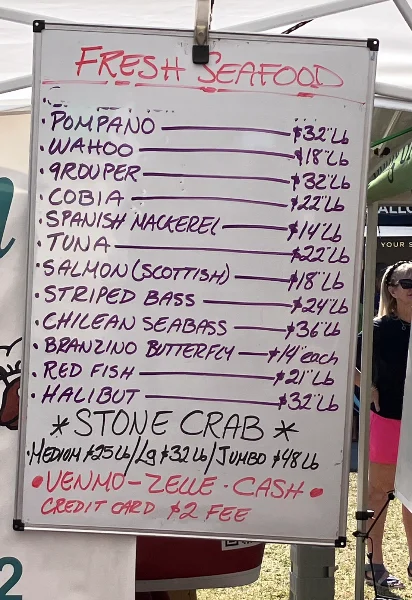 FRESH SEAFOOD
• POMPANO — $32"Lb
• WAHOO — $18"Lb
• GROUPER — $32"Lb
• COBIA — $22"Lb
• SPANISH MACKEREL — $14"Lb
• TUNA — $22"Lb
• SALMON (SCOTTISH) — $18"Lb
• STRIPED BASS — $24"Lb
• CHILEAN SEABASS — $36"Lb
• BRANZINO BUTTERFLY — $14"each
• RED FISH — $21"Lb
• HALIBUT — $32"Lb
* STONE CRAB *
• MEDIUM $25Lb/Lg $32Lb/JUMBO $48Lb
• VENMO-ZELLE • CASH •
CREDIT CARD $2 FEE
YOUR S
2